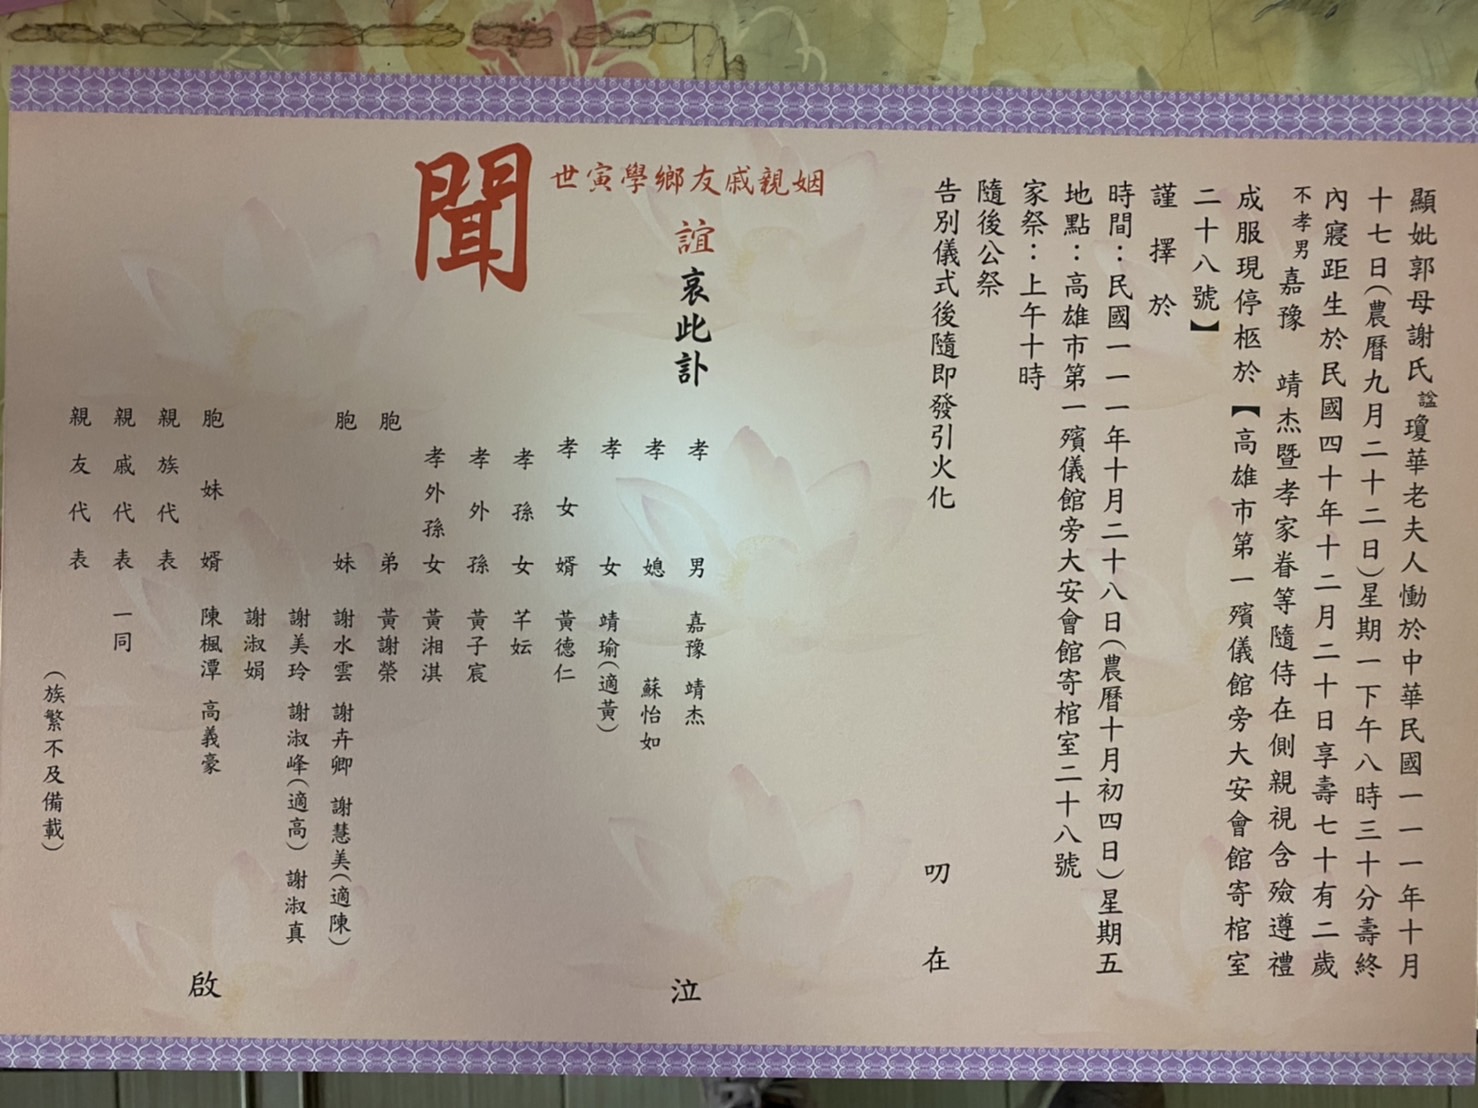 顯妣郭母謝氏諡瓊華老夫人慟於中華民國一一一年十月
十七日(農曆九月二十二日)星期一下午八時三十分壽終
內寢距生於民國四十年十二月二十日享壽七十有二歲
不孝男嘉豫 靖杰暨孝家眷等隨侍在側親視含殮遵禮
成服現停柩於【高雄市第一殯儀館旁大安會館寄棺室
二十八號】
謹擇於
時間：民國一一一年十月二十八日(農曆十月初四日)星期五
地點：高雄市第一殯儀館旁大安會館寄棺室二十八號
家祭：上午十時
隨後公祭
告別儀式後隨即發引火化
叨在
姻親戚友鄉學寅世
誼哀此訃
聞
孝男 嘉豫 靖杰 泣
孝媳 蘇怡如
孝女 靖瑜(適黃)
孝女婿 黃德仁
孝孫女 芊妘
孝外孫 黃子宸
孝外孫女 黃湘淇
胞弟 黃謝榮
胞妹 謝水雲 謝卉卿 謝慧美(適陳)
謝美玲 謝淑峰(適高) 謝淑真
謝淑娟
胞妹婿 陳楓潭 高義豪 啟
親族代表
親戚代表 一同
親友代表
(族繁不及備載)